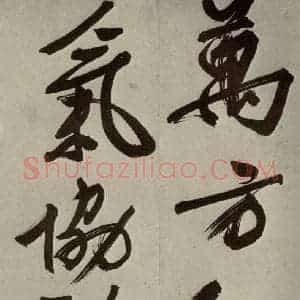 萬方
氣協
Shufaziliao.COM